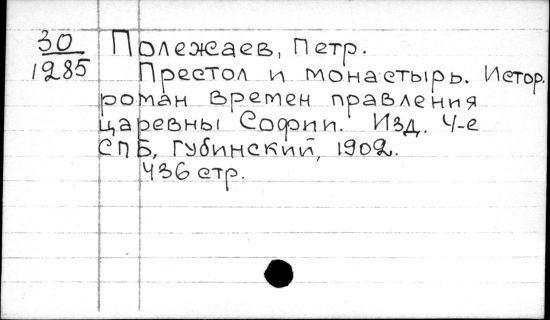 30 Полежаев, Петр.
1285 Престол и монастырь. Истор.
роман времен правления
царевны Софии. Изд. 4-е
СПБ, Губинский, 1902.
436 стр.